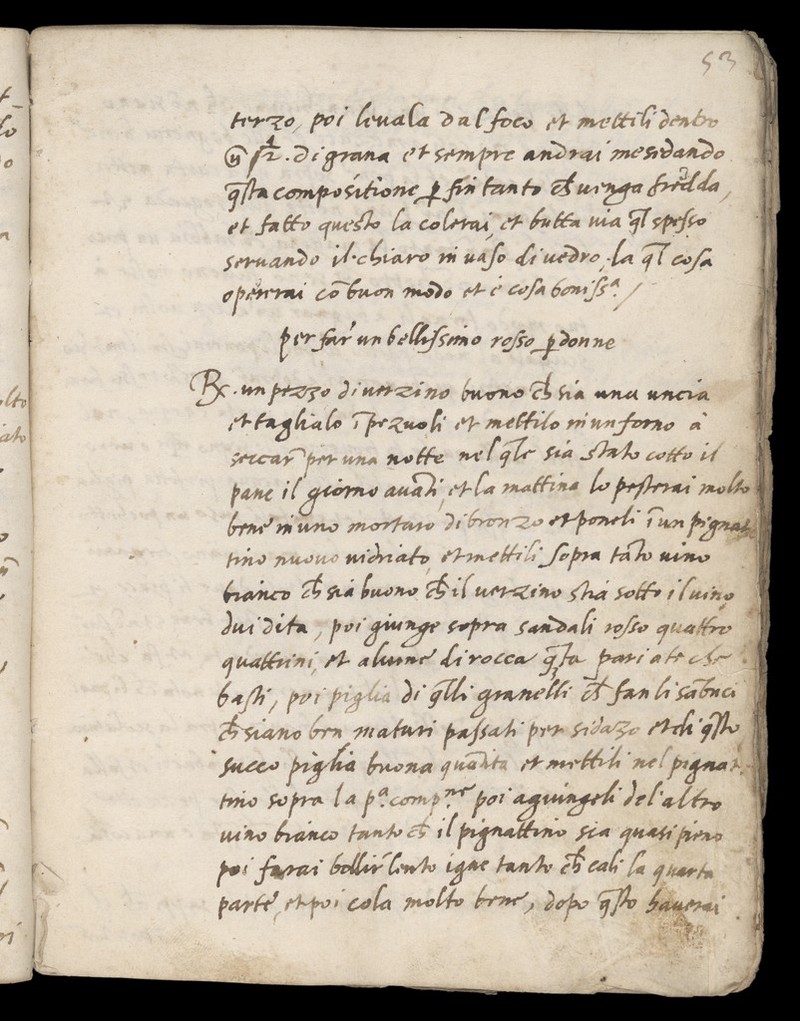 53
terzo, poi levala dal foco et mettili dentro
½. di grana et sempre andrai mesedando
q̃sta compositione ꝑ fin tanto ch̃ venga fredda,
et fatto questo la colerai, et butta via q̃l spesso
servando il chiaro in vaso di vedro, la q̃l cosa
opererai cõ buon modo et è cosa boniss.ª /
per far un bellissimo rosso ꝑ donne
℞. un pezzo di verzino buono ch̃ sia una uncia
et taglialo ĩ pezuoli et mettilo in un forno à
seccar per una notte nel q̃le sia stato cotto il
pane il giorno avãti, et la mattina lo pesterai molto
bene in uno mortaro di bronzo et poneli ĩ un pignat
tino nuovo vidriato, et mettili sopra tãto vino
bianco ch̃ sia buono ch̃ il verzino stia sotto il vino
dui dita, poi giunge sopra sandali rosso quattro
quattrini, et alume di rocca q̃sta pari a te che
basti, poi piglia di q̃lli granelli ch̃ fan li sãbuci
ch̃ siano ben maturi passati per sidazo et di q̃sto
succo piglia buona quãtita et mettili nel pignat
tino sopra la p.ª comp.ne poi agiungeli del altro
vino bianco tanto ch̃ il pignattino sia quasi pieno
poi farai bollir lento igne tanto ch̃ cali la quarta
parte, et poi cola molto bene, dopo q̃sto haverai